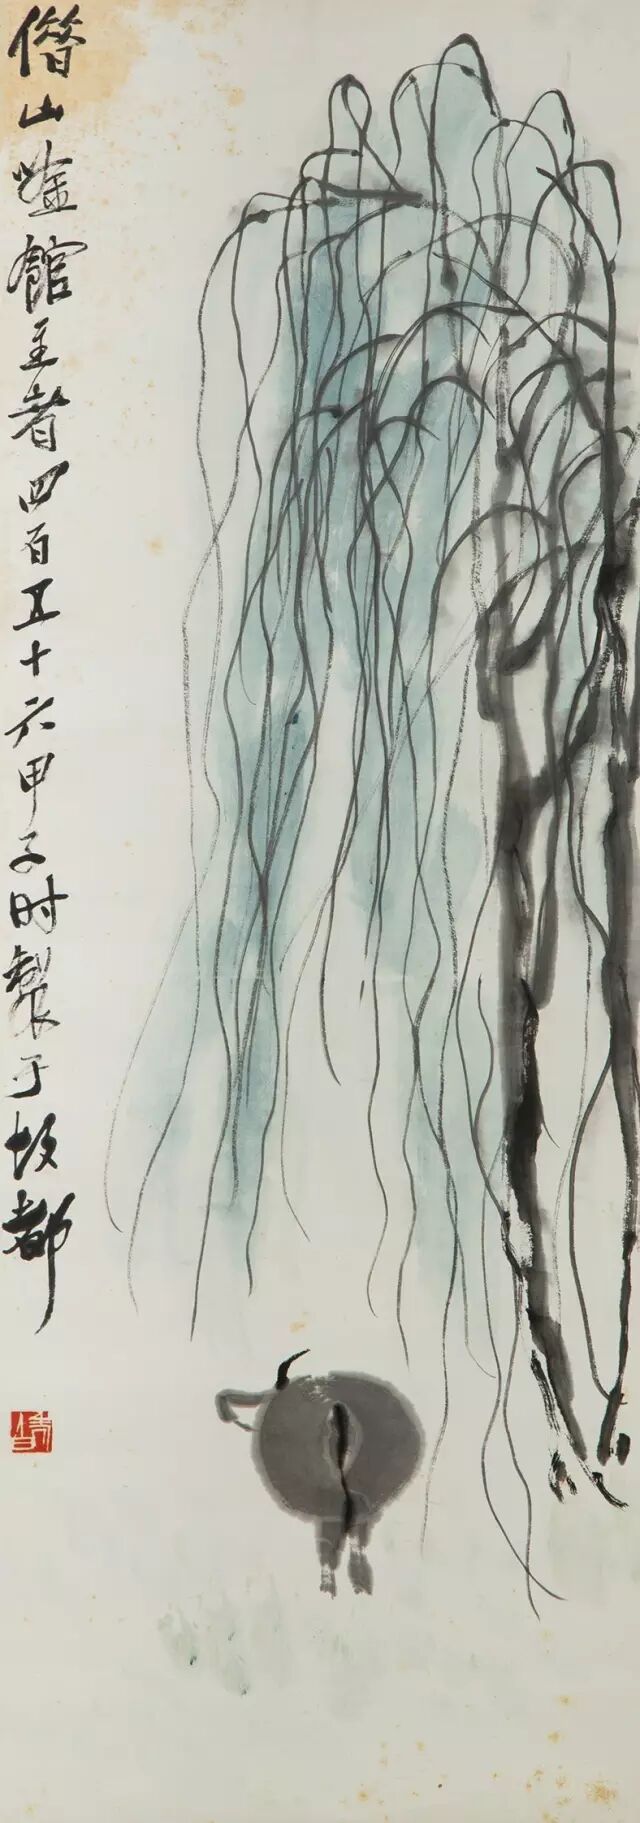 借山唫館主者四百五十六甲子时製于故都